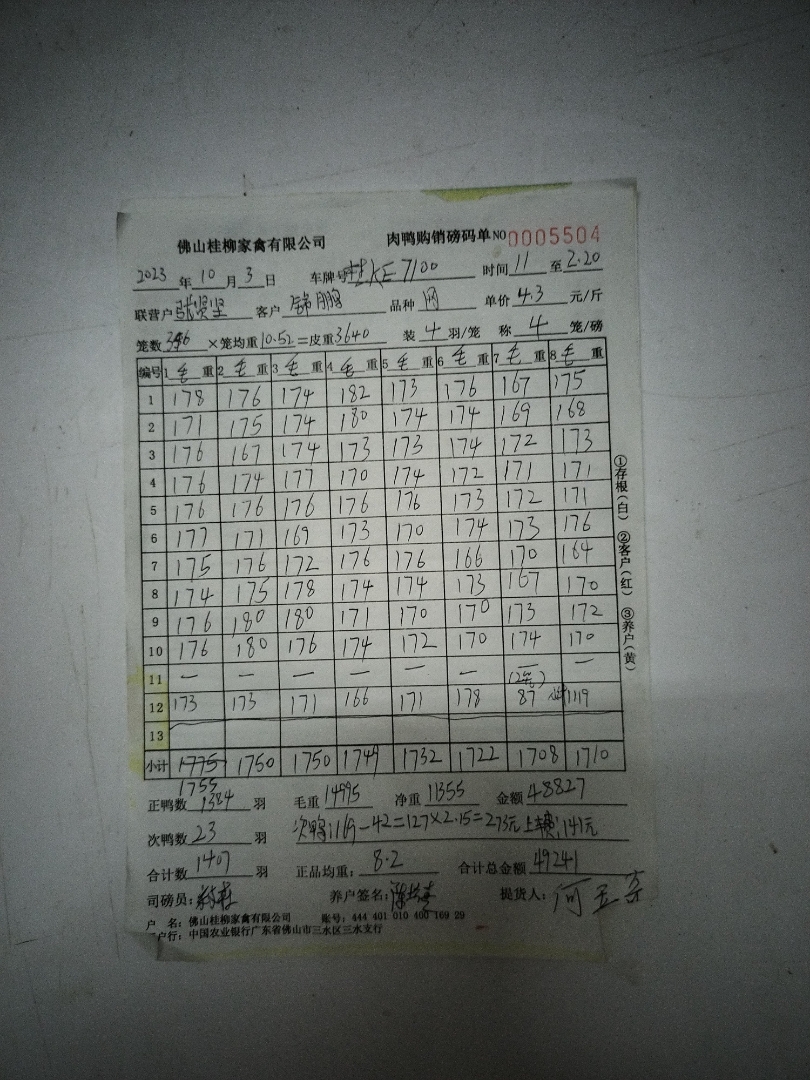 佛山桂柳家禽有限公司 肉鸭购销磅码单 NO 0005504
2023 年 10 月 3 日 车牌号 KE7100 时间 11 至 2.20
联营户 张贤坚 客户 锦鹏 品种 网 单价 4.3 元/斤
笼数 346 ×笼均重 10.52 =皮重 3640 装 4 羽/笼 称 4 笼/磅
编号 1 毛 重 2 毛 重 3 毛 重 4 毛 重 5 毛 重 6 毛 重 7 毛 重 8 毛 重
1 178 176 174 182 173 176 167 175
2 171 175 174 180 174 174 169 168
3 176 167 174 173 173 174 172 173
4 176 174 177 170 174 172 171 171
5 176 176 176 176 176 173 172 171
6 177 171 169 173 170 174 173 176
7 175 176 172 176 176 166 170 164
8 174 175 178 174 174 173 167 170
9 176 180 180 171 170 170 173 172
10 176 180 176 174 172 170 174 170
11 — — — — — — — —
(2笼)
12 173 173 171 166 171 178 87 1119
13
小计 1775 1750 1750 1749 1732 1722 1708 1710
1755
正鸭数 1384 羽 毛重 14995 净重 11355 金额 48827
次鸭数 23 次鸭:169-42=127×2.15=273元 上车费:141元
合计数 1407 羽 正品均重: 8.2 合计总金额 49241
司磅员: 养户签名: 提货人: 何
户 名: 佛山桂柳家禽有限公司 账号: 444 401 010 400 169 29
户行: 中国农业银行广东省佛山市三水区三水支行
①存根(白) ②客户(红) ③养户(黄)